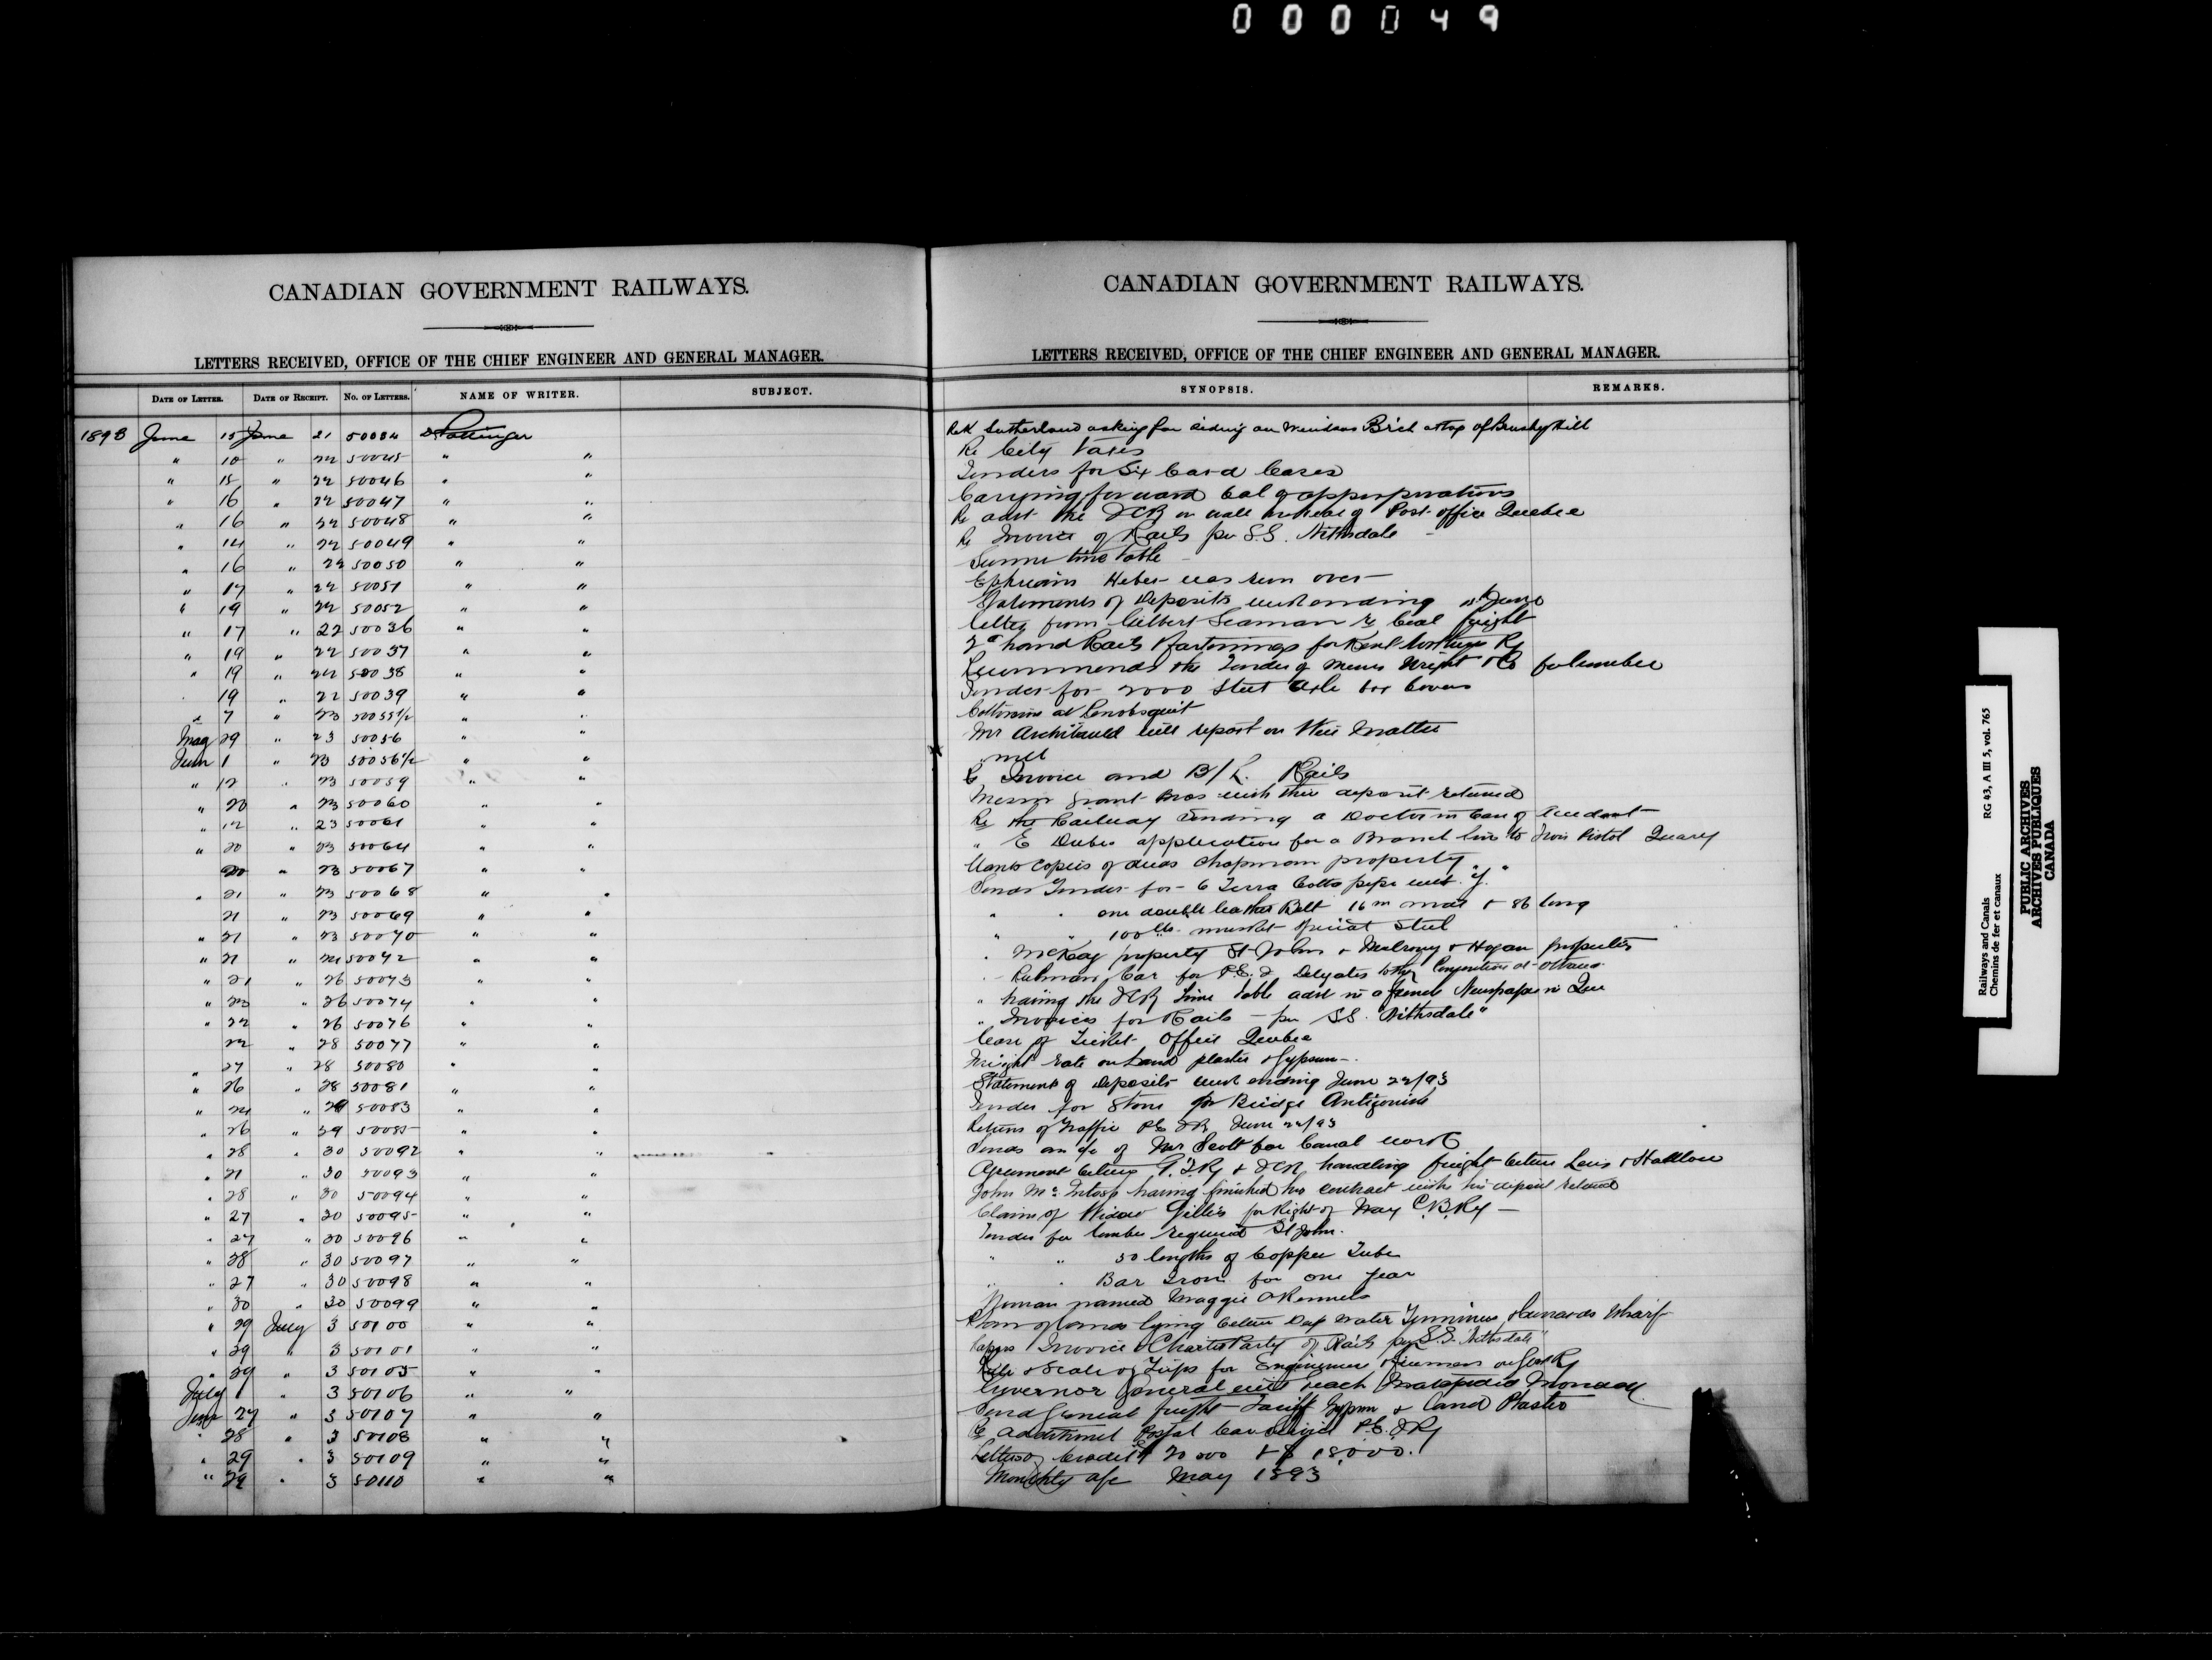 000049
CANADIAN GOVERNMENT RAILWAYS.
LETTERS RECEIVED, OFFICE OF THE CHIEF ENGINEER AND GENERAL MANAGER.
DATE OF LETTER. DATE OF RECEIPT. NO. OF LETTERS. NAME OF WRITER. SUBJECT.
1893 June 15 June 21 50034 D Pottinger
" 10 " 22 50045 " "
" 15 " 22 50046 " "
" 16 " 22 50047 " "
" 16 " 22 50048 " "
" 14 " 22 50049 " "
" 16 " 22 50050 " "
" 17 " 22 50051 " "
" 19 " 22 50052 " "
" 17 " 22 50036 " "
" 19 " 22 50037 " "
" 19 " 22 50038 " "
19 " 22 50039 " "
" 7 " 23 50055½ " "
May 29 " 23 50056 " "
June 1 " 23 50056½ " "
" 12 " 23 50059 " "
" 20 " 23 50060 " "
" 12 " 23 50061 " "
" 20 " 23 50064 " "
20 " 23 50067 " "
" 21 " 23 50068 " "
21 " 23 50069 " "
" 21 " 23 50070 " "
" 21 " 24 50072 " "
" 21 " 26 50073 " "
" 23 " 26 50074 " "
" 22 " 26 50076 " "
22 " 28 50077 " "
" 27 " 28 50080 " "
" 26 " 28 50081 " "
" 24 " 29 50083 " "
" 26 " 29 50085 " "
" 28 " 30 50092 " "
" 21 " 30 50093 " "
" 28 " 30 50094 " "
" 27 " 30 50095 " "
" 27 " 30 50096 " "
" 28 " 30 50097 " "
" 27 " 30 50098 " "
" 30 " 30 50099 " "
" 29 July 3 50100 " "
" 29 " 3 50101 " "
" 29 " 3 50105 " "
July 1 " 3 50106 " "
June 27 " 3 50107 " "
" 28 " 3 50108 " "
" 29 " 3 50109 " "
" 29 " 3 50110 " "
CANADIAN GOVERNMENT RAILWAYS.
LETTERS RECEIVED, OFFICE OF THE CHIEF ENGINEER AND GENERAL MANAGER.
SYNOPSIS. REMARKS.
Sutherland asking for siding on Windsor Br'ch atop of Brushy Hill
Re City Taxes
Tenders for Six Card Cases
Carrying forward bal of appropriations
Re advt the ICR on wall in rear of Post office Quebec
Re Invoice of Rails per S.S. Nithsdale
Summer time table
Ephriam Heber was run over
Statements of Deposits week ending June
Letter from Gilbert Seaman re Coal freight
2nd hand Rails & fastenings for Kent Northern Ry
Recommends the Tender of Messrs Wright & Co for lumber
Tender for 2000 Steel Axle box Covers
at Penobsquis
Mr Archibald will report on this matter
Re Invoice and B/L Rails
Messrs Grant Bros wish their deposit returned
Re the Railway sending a Doctor in Case of Accident
" E Dube application for a Branch line to Trois Pistol Quarry
Wants copies of deeds Chapman property
Sends Tender for 6 Terra Cotta pipe
" " one double leather Belt 16 in wide & 86 long
" " 100 lbs mushet special Steel
" McKay property St John & Mulrony & Hogan properties
" Pulman Car for P.E.I. Delegates to the Convention at Ottawa
" having the ICR time table advt in a french Newspaper in Que
" Invoices for Rails per SS. "Nithsdale"
Lease of Ticket Office Quebec
Freight rate on Land plaster & Gypsum
Statement of Deposits week ending June 22/93
Tender for Stone for Bridge Antigonish
Returns of Traffic P.E.I.R. June 22/93
Sends an a/c of Mr Scott for Canal work
Agreement between G.T.Ry & ICR handling freight between Levis & Hadlow
John McIntosh having finished his contract wishes his deposit returned
Claim of Widow Gillis for Right of Way C.B.Ry
Tender for lumber required St John.
" " 50 lengths of Copper Tube
" " Bar Iron for one year
Woman named Maggie
Plan of lands lying between Deep Water Terminus & Cunards Wharf
Copies Invoice & Charter Party of Rails per S.S. "Nithsdale"
Rate & Scale of Trips for Enginemen & firemen on Govt Ry
Governor General will reach Matapedia Monday
Send Special freight Tariff Gypsum & Land Plaster
Re Additional Postal Car Service P.E.I.Ry
Letters of Credit $20 000 & $18,000.
Monthly a/c May 1893
Railways and Canals RG 43, A III 5, vol. 765
Chemins de fer et canaux
PUBLIC ARCHIVES
ARCHIVES PUBLIQUES
CANADA